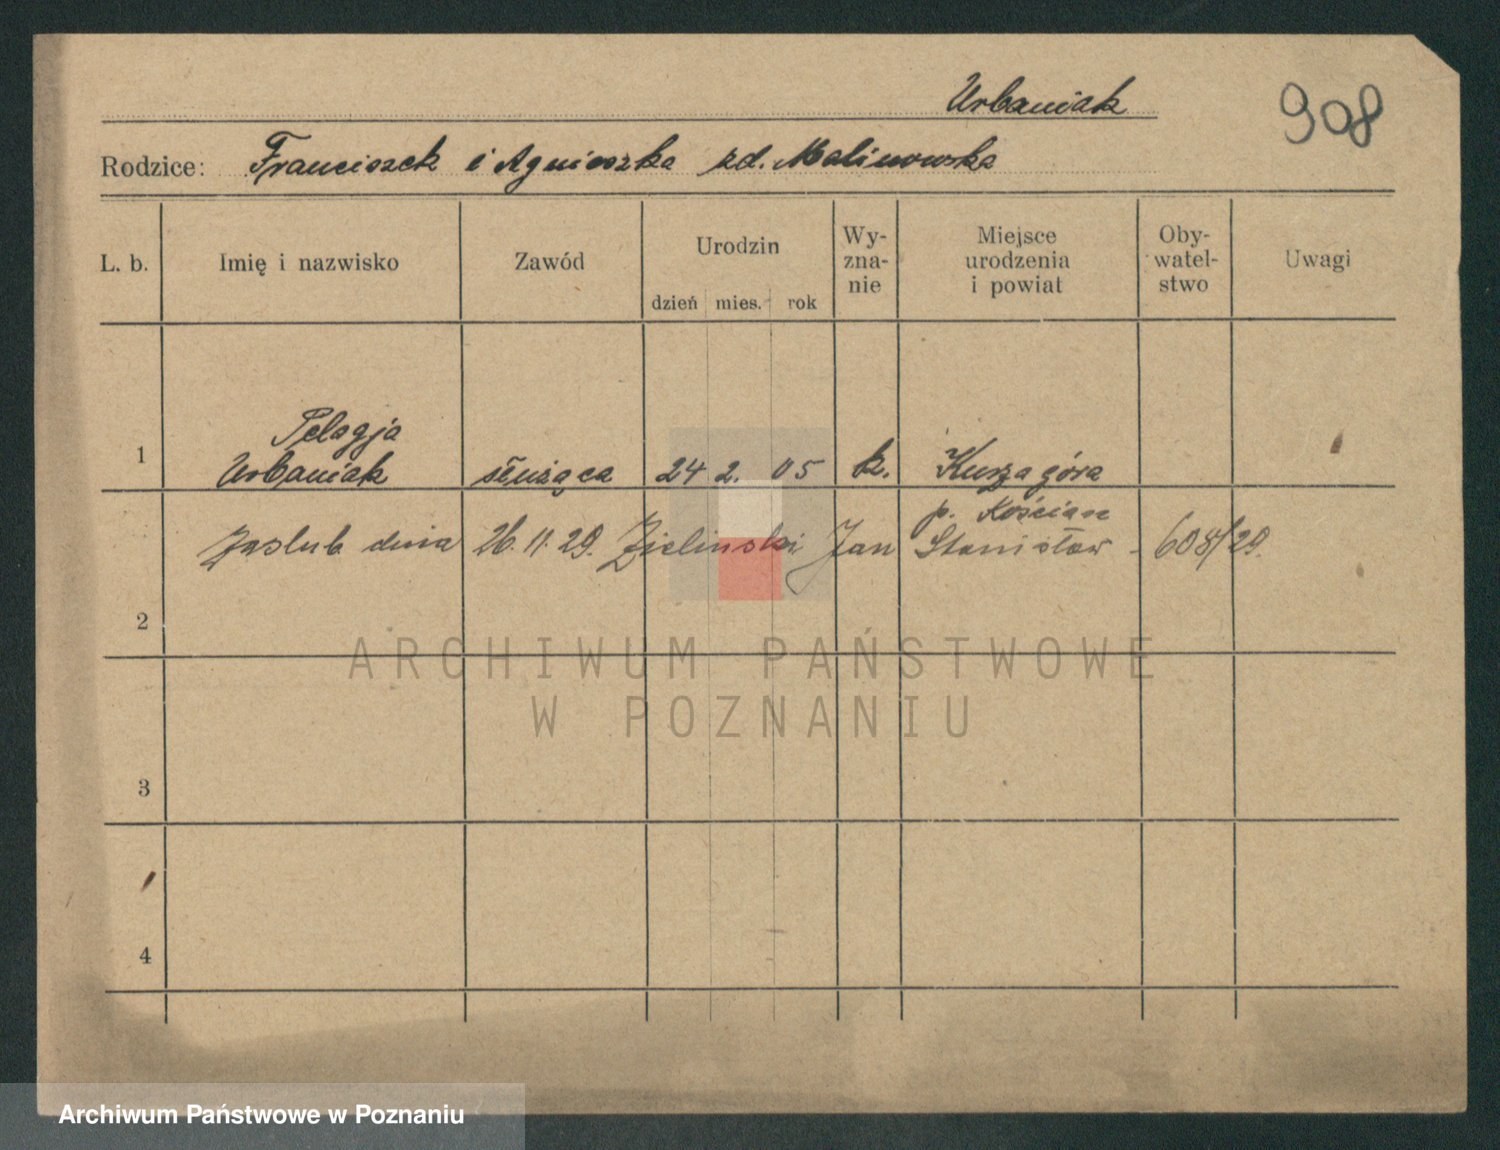 Urbaniak
908
Rodzice: Franciszek i Agnieszka zd. Malinowska
L. b. Imię i nazwisko Zawód Urodzin dzień mies. rok Wy-zna-nie Miejsce urodzenia i powiat Oby-watel-stwo Uwagi
Pelagja
1 Urbaniak służąca 24 2. 05 k. Kurzagóra
p. Kościan
Zaślub. dnia 26.11.29. Zieliński Jan Stanisław - 608/29.
2
ARCHIWUM PAŃSTWOWE
W POZNANIU
3
4
Archiwum Państwowe w Poznaniu